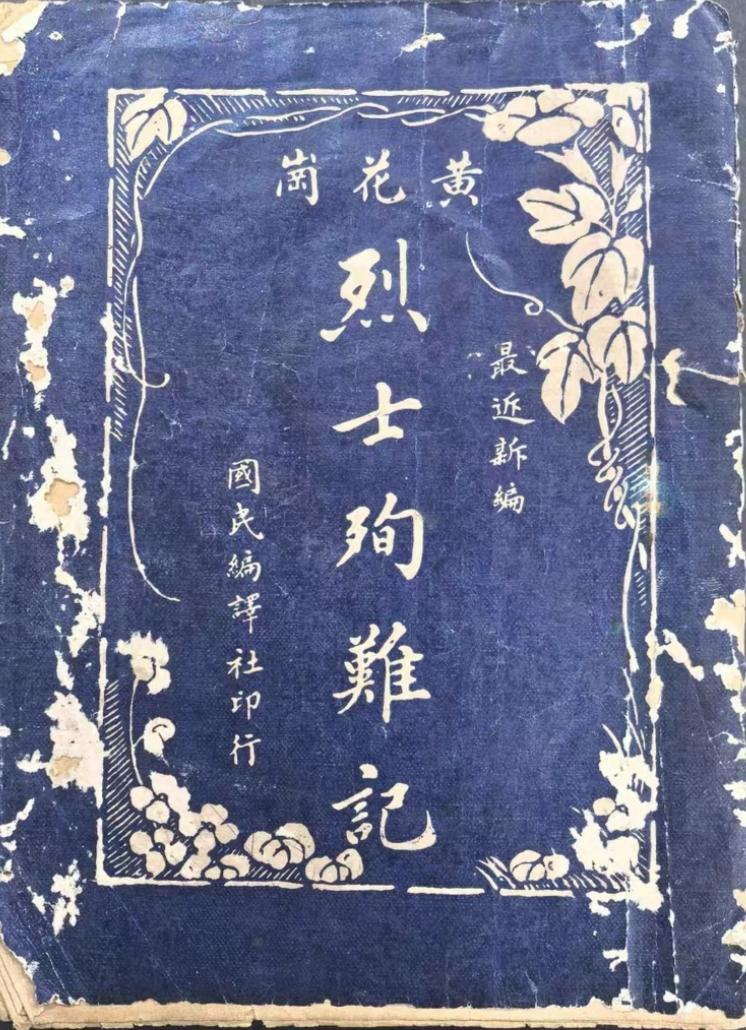 黄花崗
最近新編
烈士殉難記
國民編譯社印行